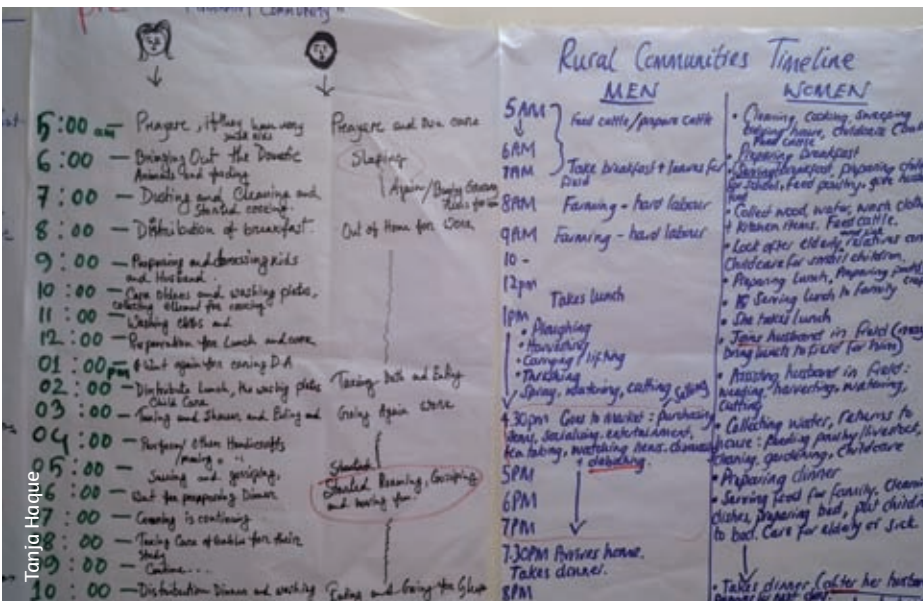 Community"
5:00 am — Prayers, if they have very
6:00 — Bringing Out the Domestic
Animals and
7:00 — Dusting and Cleaning and
Started cooking
8:00 — Distribution of breakfast.
9:00 — Preparing and dressing kids
and Husband.
10:00 — Care and washing plates,
collecting for cooking
11:00 — Washing and
12:00 — Preparation for Lunch and care
01:00 pm again for
02:00 — Distribute Lunch, the washing plates
Child Care
03:00 — Taking and Shower and Eating and
04:00 — Perform other Handicrafts
making " "
05:00 — and gossiping,
6:00 — for preparing Dinner
7:00 — Cooking is continuing
8:00 — Taking Care of for their
Study
9:00 — Continue....
10:00 — Distribution Dinner and washing
Prayers and
Sleeping
Again/
Out of Home for Work
Taking Bath and Eating
Going Again Work
Started
Started Roaming, Gossiping
and having fun
Eating and Going for Sleep
Rural Communities Timeline
MEN
5AM
Feed cattle/prepare cattle
6AM
7AM
Take breakfast + leaves for
field
8AM Farming - hard labour
9AM Farming - hard labour
10 -
12pm
Takes lunch
1pm
• Ploughing
• Harvesting
• Carrying/lifting
• Threshing
• Spray, watering, cutting, selling
4.30pm Goes to Market: purchasing
items, socialising, entertainment,
tea taking, watching news,
debating.
5PM
6PM
7PM
7.30PM Arrives home.
Takes dinner.
8PM
WOMEN
• Cleaning, cooking, sweeping
house, childcare
Feed cattle
• Preparing breakfast
• Serving breakfast, preparing
for school, feed poultry, give
• Collect wood, water, wash
+ kitchen items. Feed cattle.
• Look after elderly, relatives and
Childcare for small children.
• Preparing lunch, Preparing
• Serving lunch to family
• She takes lunch
• Joins husband in field
bring lunch to field for him)
• Assisting husband in field:
weeding, harvesting, watering,
cutting
• Collecting water, returns to
house: feeding poultry/livestock,
cleaning, gardening, childcare
• Preparing dinner
• Serving food for family. Cleaning
dishes, preparing bed, put children
to bed. Care for elderly or sick.
• Takes dinner (after her
Tanja Haque